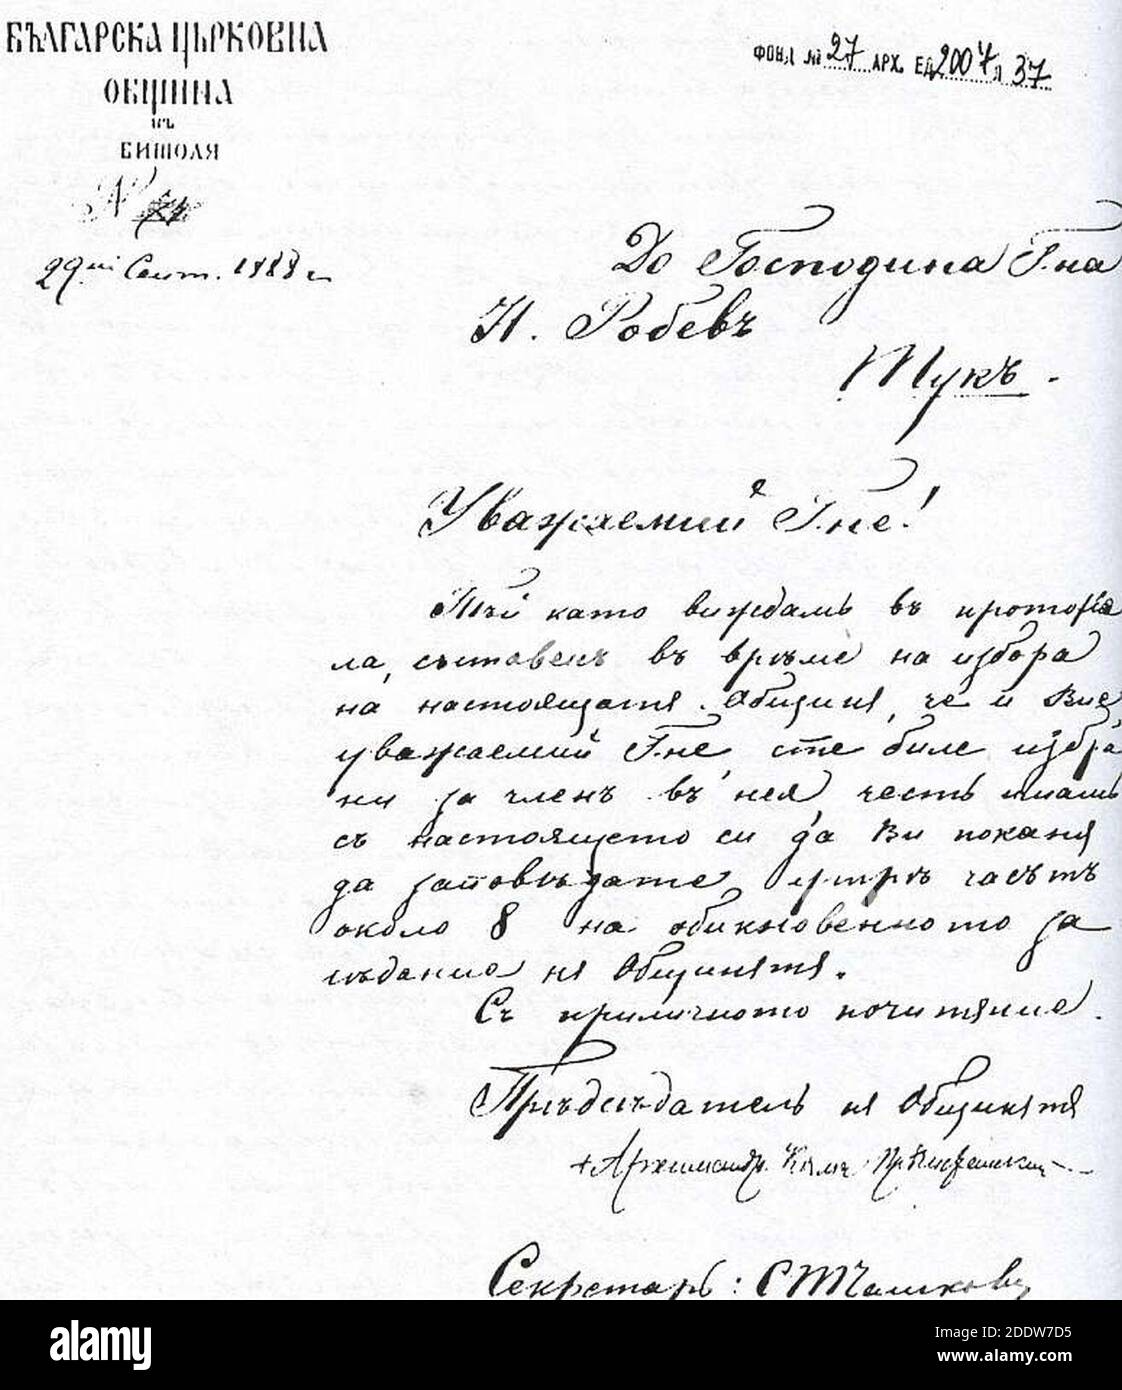 БЪЛГАРСКА ЦЬРКОВНА
ОБЩИНА
ВЪ
БИТОЛЯ
N
29ий Септ. 1888 г.
ФОНД № 27 АРХ. ЕД. 2007 л 37
До Господина Г-на
Н. Робевъ
Тукъ.
Уважаемий Г-не!
Тъй като виждамъ въ протоко
ла, съставенъ въ врѣме на избора
на настоящата Община, че и Вие,
уважаемий Г-не, сте биле избра
ни за членъ въ нея, честь имамъ
съ настоящето си да Ви поканя
да заповѣдате утрѣ часътъ
около 8 на обикновенното за
сѣдание на Общината.
Съ приличното почитание.
Прѣдсѣдатель на Общината
+ Архимандр.
Секретарь: С Т Чашковъ
alamy
Image ID: 2DDW7D5
www.alamy.com